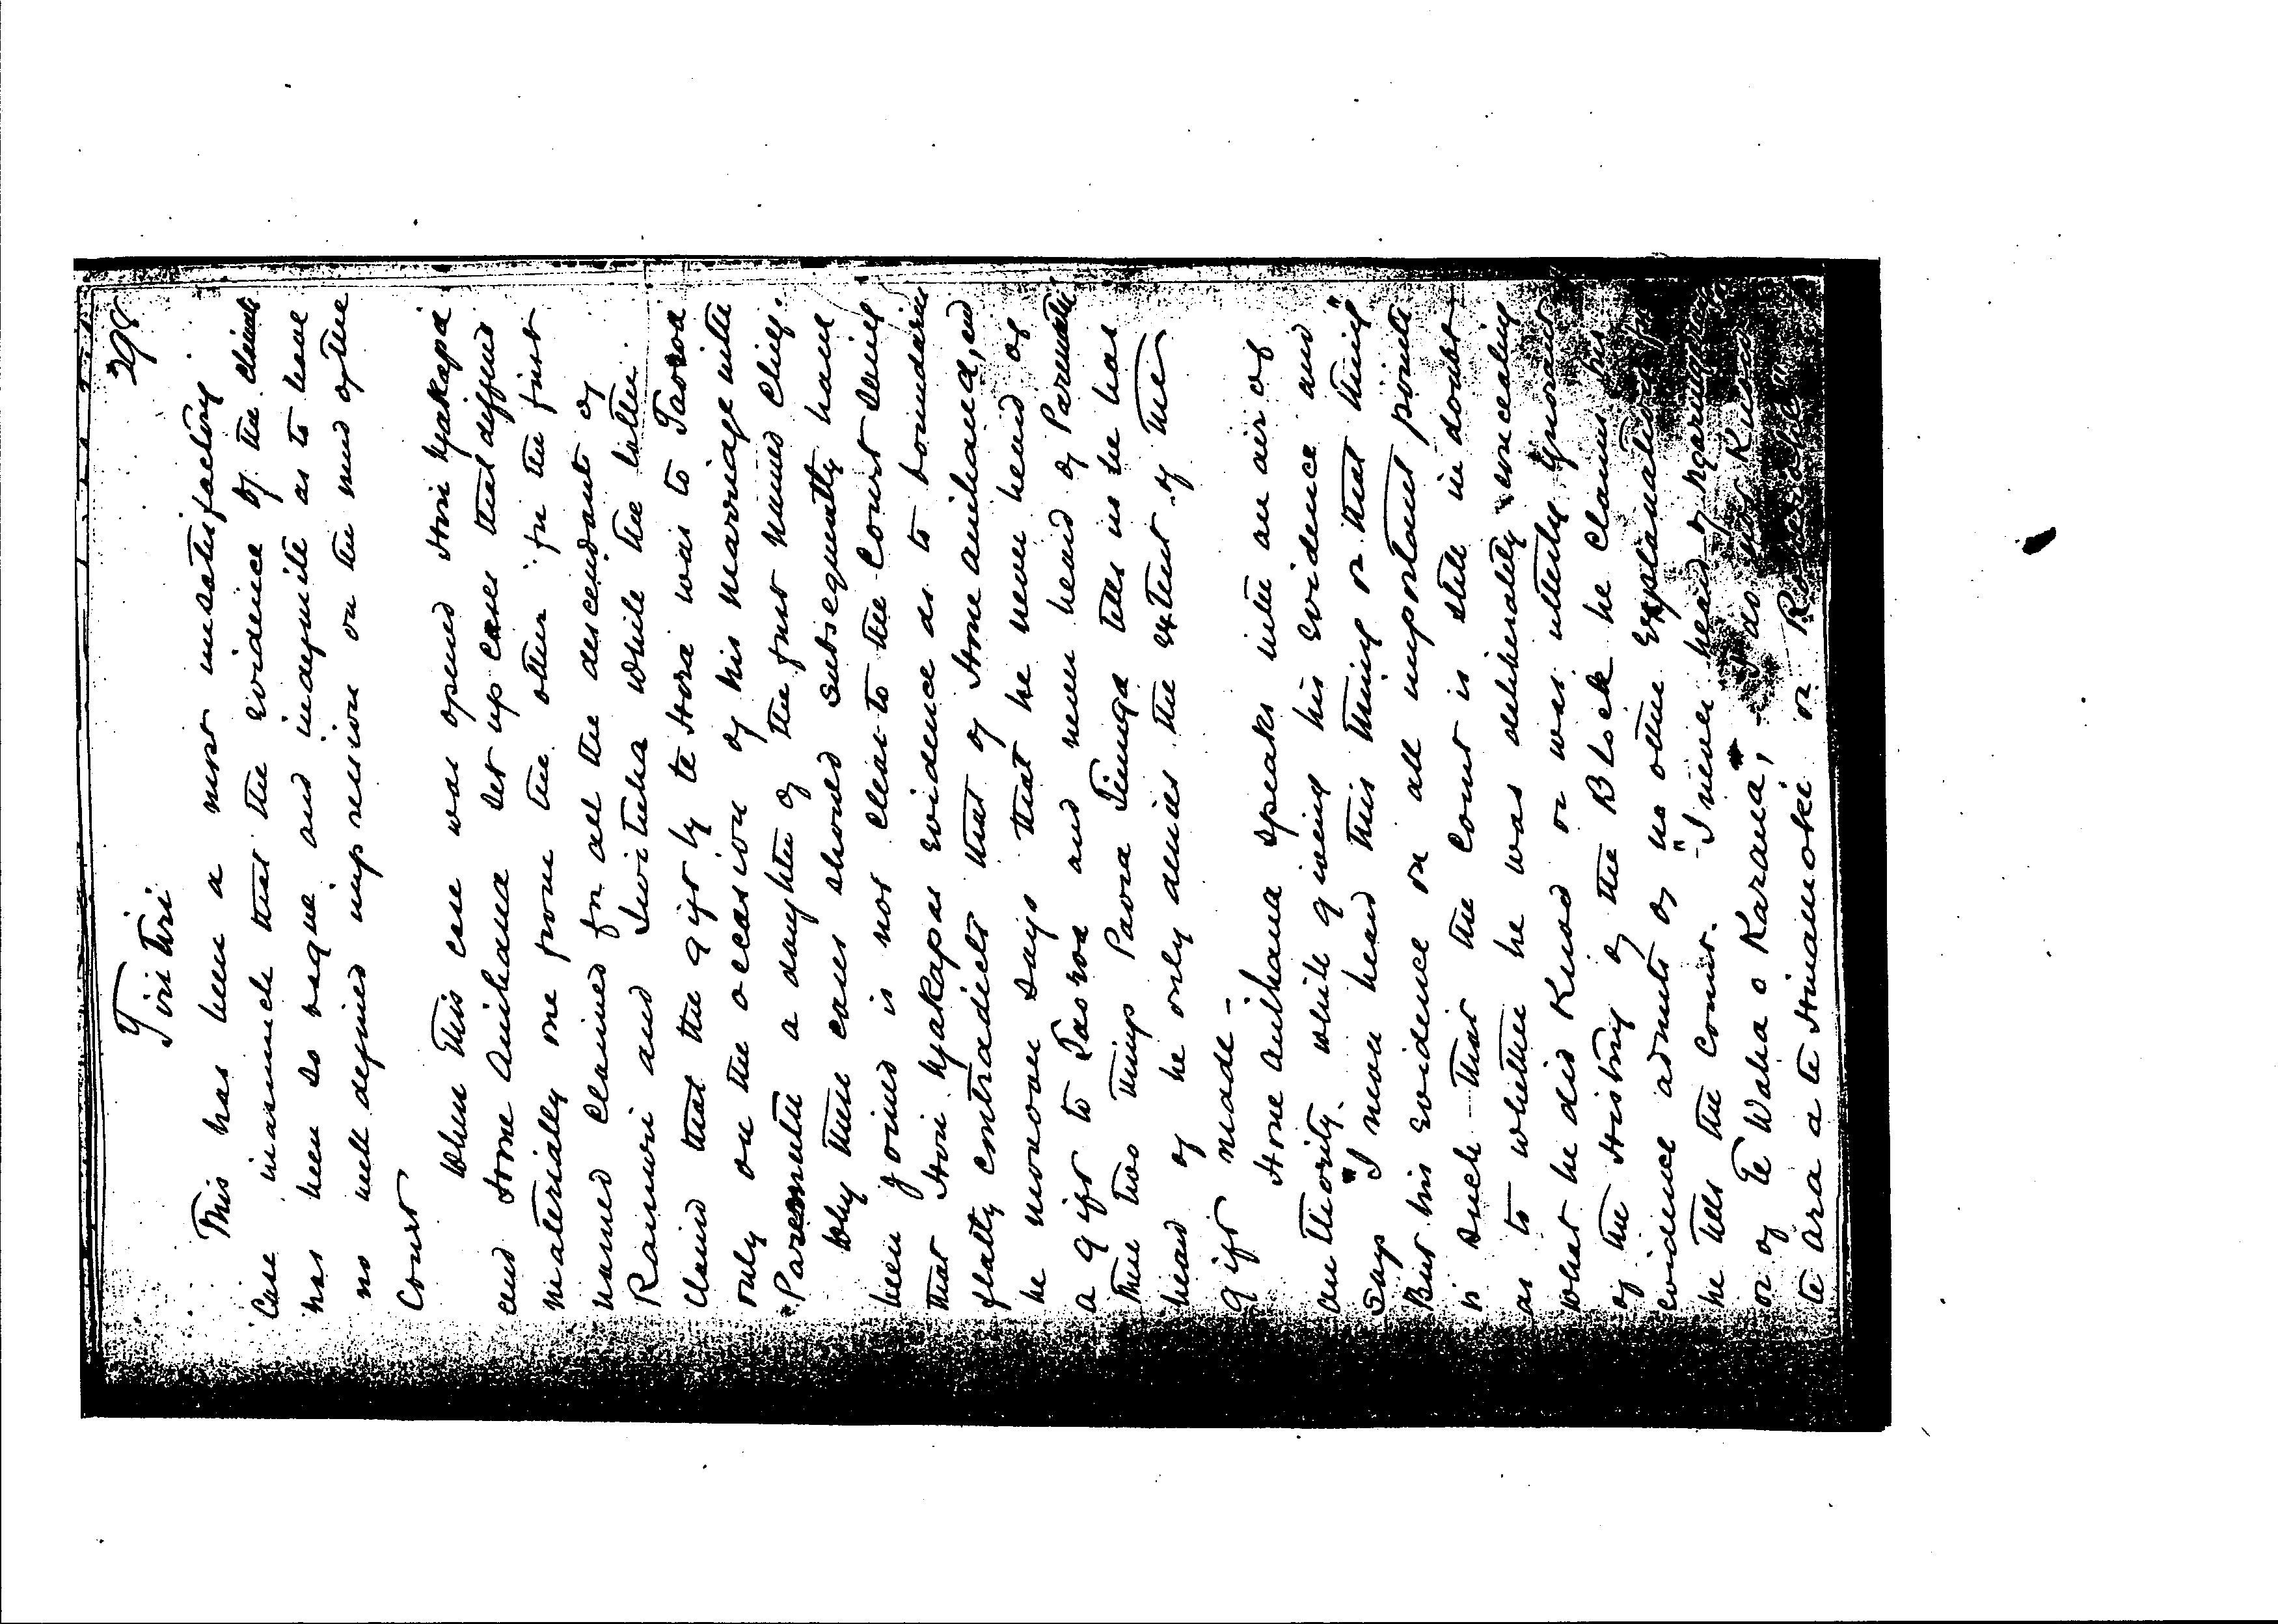 298
Tiritiri
This has been a most unsatisfactory
Case inasmuch that the evidence of the claimants
has been so vague and indefinite as to leave
no well defined impression on the mind of the
Court
When this case was opened Hori Ngakapa
and Hone Anihana set up cases that differed
materially one from the other for the first
named claimed for all the descendants of
Raiwiri and while the latter
claimed that the gift by te Hora was to Taoroa
only on the occasion of his marriage with
Parenuku a daughter of the first named chief.
Why these cases should subsequently have
been joined is not clear to the Court seeing
that Hori Ngakapas evidence as to boundaries
flatly contradicts that of Hone Anihana, and
he moreover says that he never heard of
a gift to Taoroa and never heard of Parenuku
These two things Paora Tiunga tells us he has
heard of he only denies the extent of the
gift made -
Hone Anihana speaks with an air of
authority while giving his evidence and
says "I never heard this thing or that thing"
But his evidence on all important points
is such that the Court is still in doubt
as to whether he was deliberately concealing
what he did know or was utterly ignorant
of the History of the Block he claims his
evidence admits of no other explanation for
he tells the Court. "I never heard of
or of Te Waha o Karana", "I do not know
te Ara a te Himamoke or